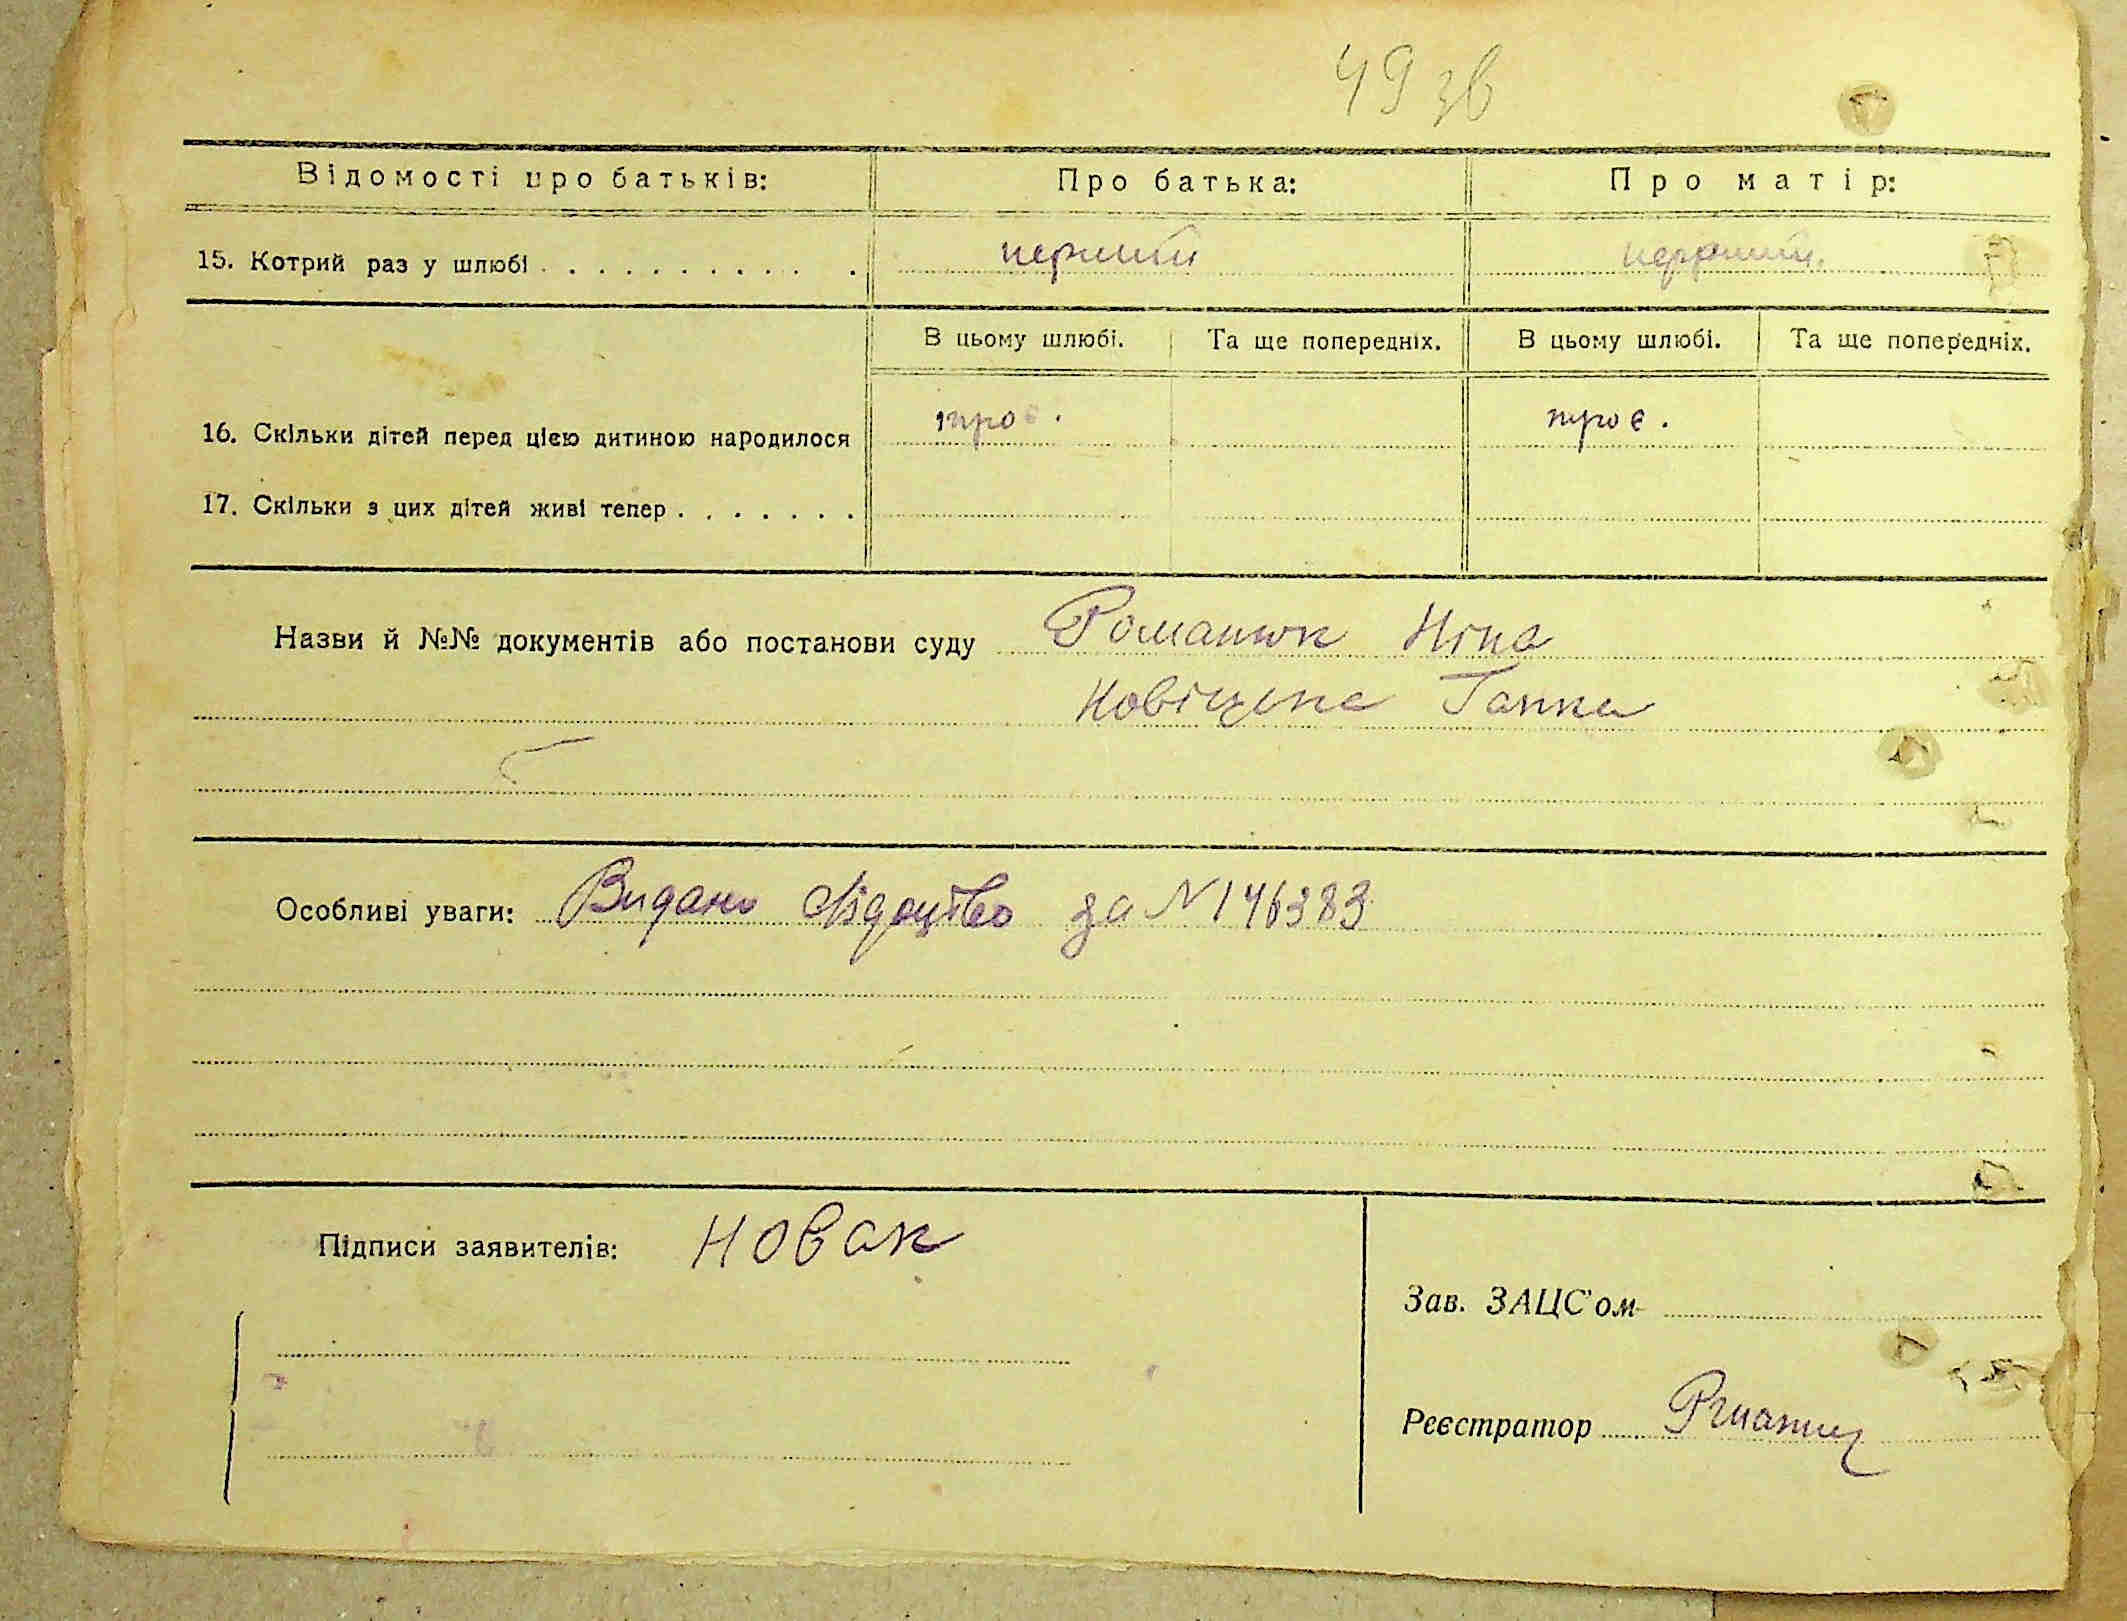 49 зв
Відомості про батьків: Про батька: Про матір:
15. Котрий раз у шлюбі перший перший.
В цьому шлюбі. Та ще попередніх. В цьому шлюбі. Та ще попередніх.
16. Скільки дітей перед цією дитиною народилося троє. троє.
17. Скільки з цих дітей живі тепер
Назви й №№ документів або постанови суду Романюк Ніна
Ганка
Особливі уваги: Видано свідоцтво за N 146383
Підписи заявителів: Новак
Зав. ЗАЦС'ом
Реєстратор